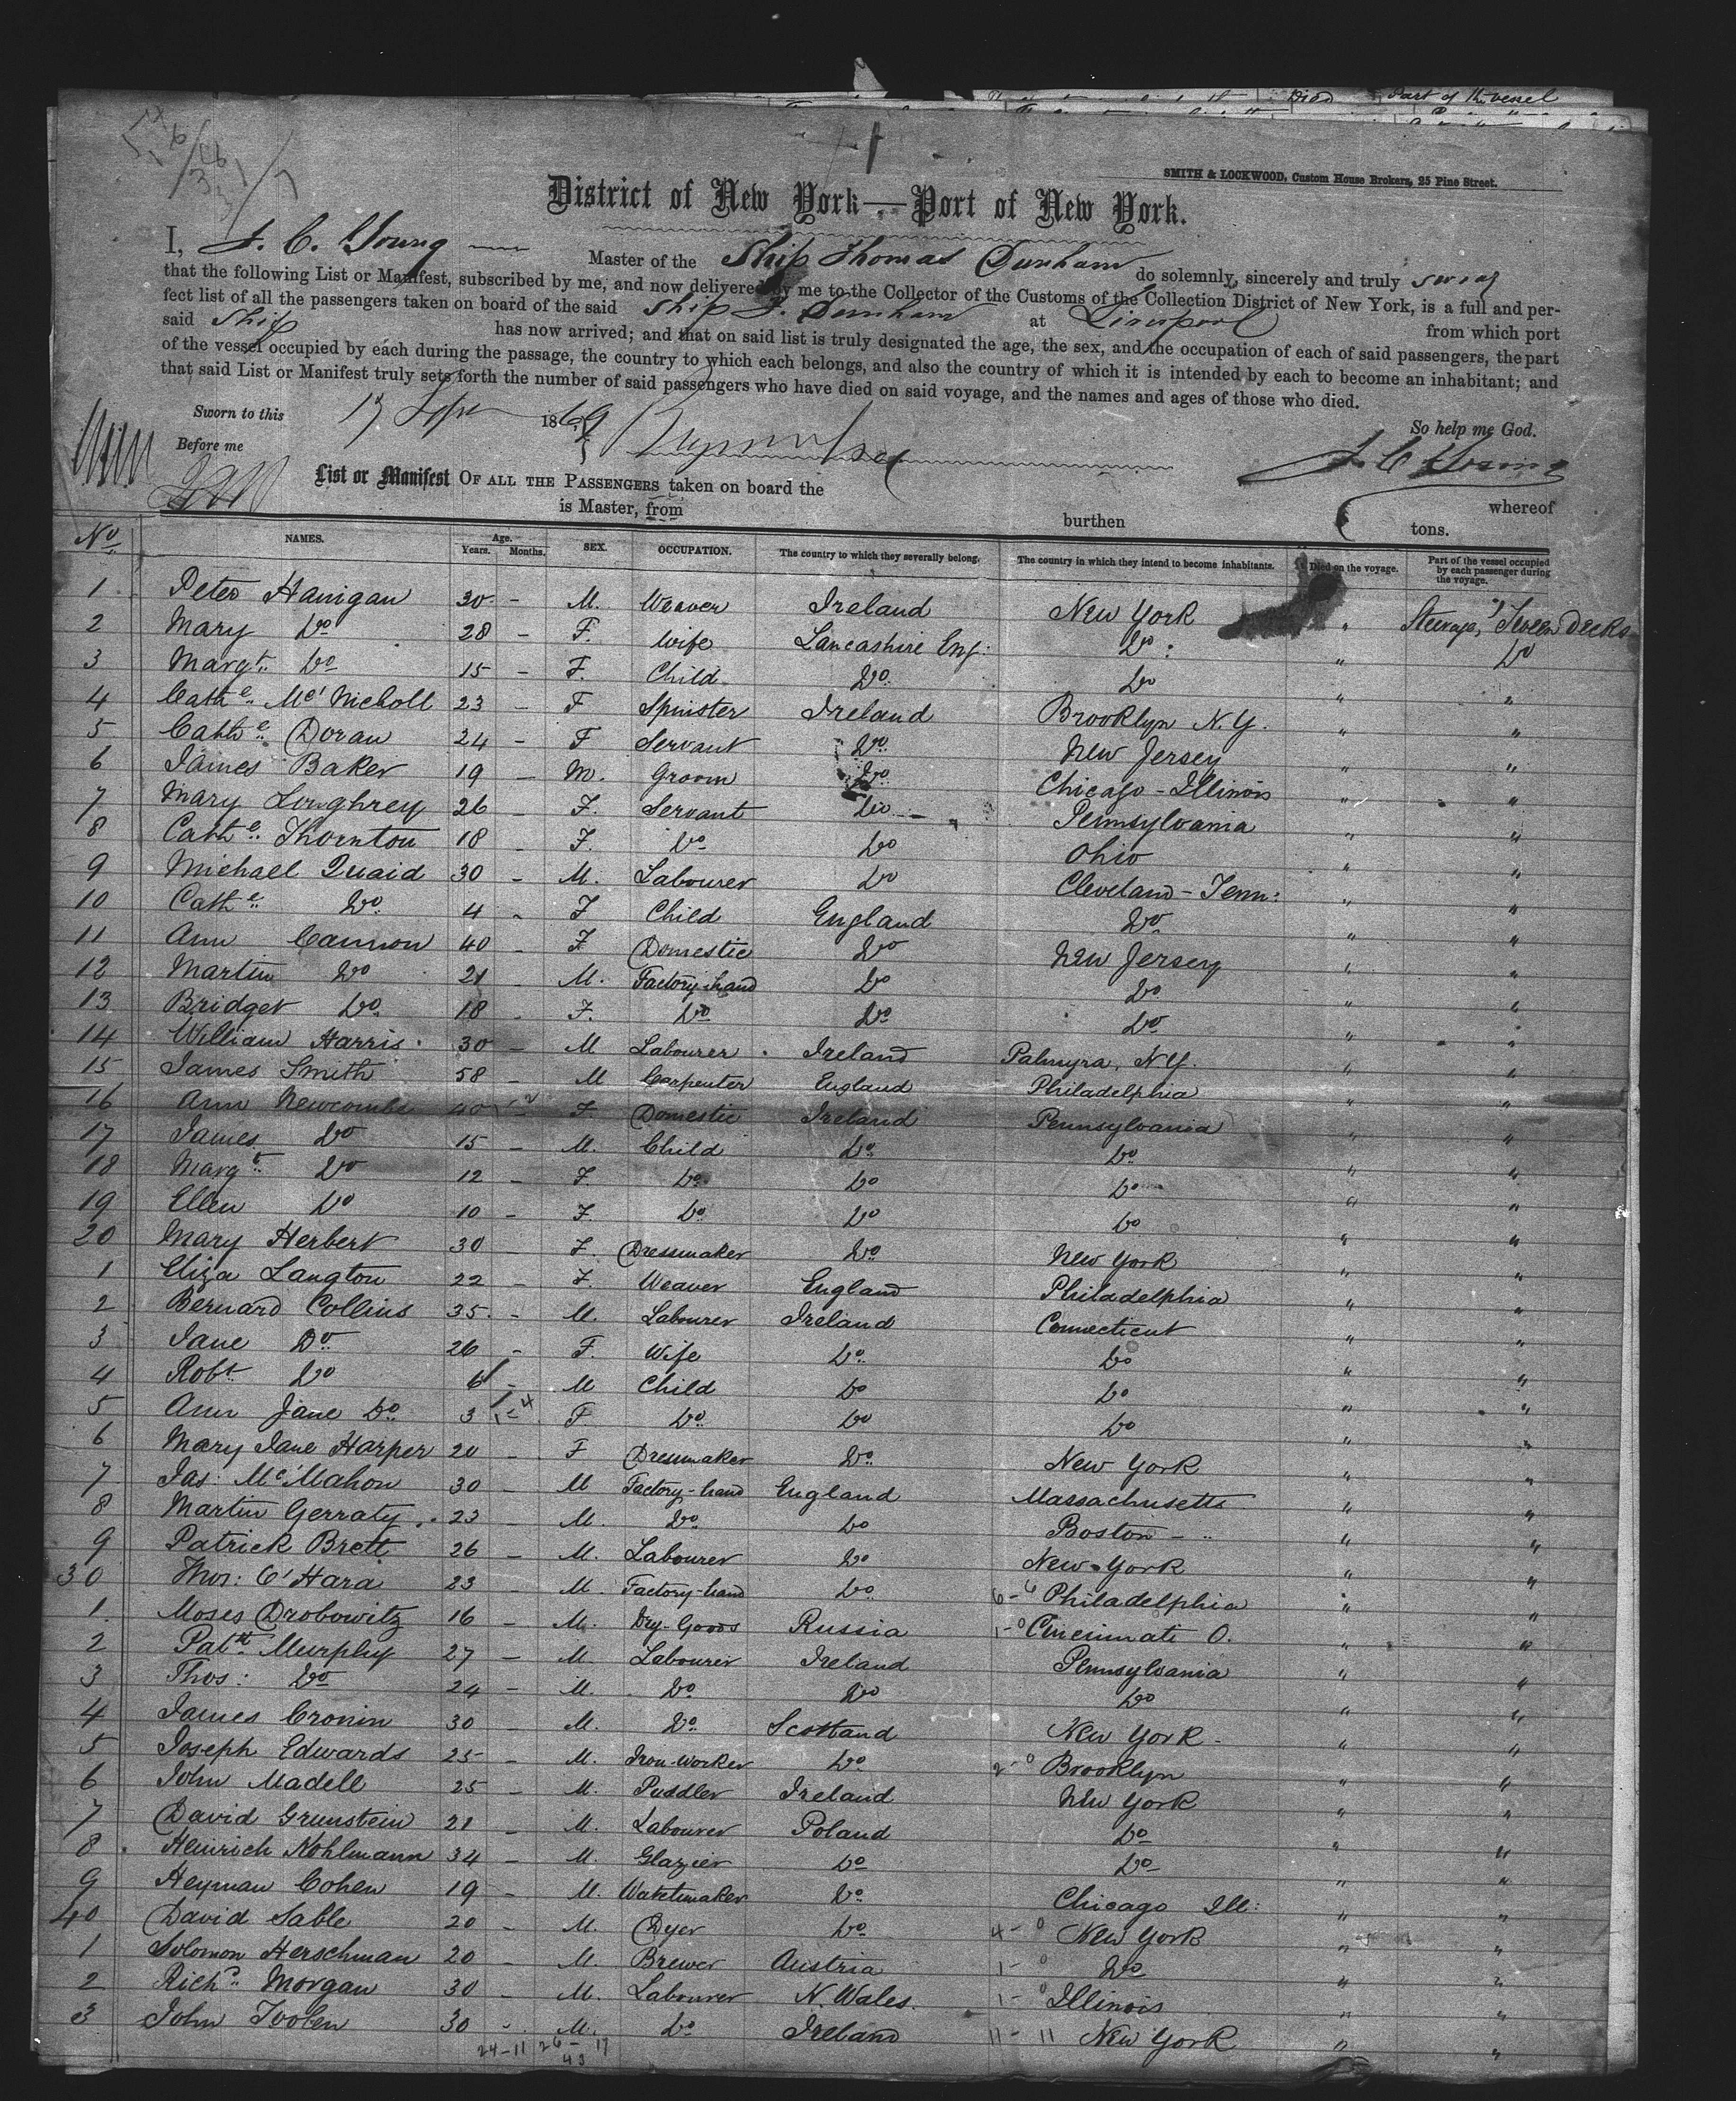 Died Part of the vessel
SMITH & LOCKWOOD, Custom House Brokers, 25 Pine Street.
District of New York—Port of New York.
I, J. C. Young Master of the Ship Thomas Dunham do solemnly, sincerely and truly swear
that the following List or Manifest, subscribed by me, and now delivered by me to the Collector of the Customs of the Collection District of New York, is a full and per-
fect list of all the passengers taken on board of the said Ship T. Dunham at Liverpool from which port
said Ship has now arrived; and that on said list is truly designated the age, the sex, and the occupation of each of said passengers, the part
of the vessel occupied by each during the passage, the country to which each belongs, and also the country of which it is intended by each to become an inhabitant; and
that said List or Manifest truly sets forth the number of said passengers who have died on said voyage, and the names and ages of those who died.
Sworn to this 17 1869 So help me God.
Before me J. C. Young
List or Manifest OF ALL THE PASSENGERS taken on board the whereof
is Master, from burthen tons.
No. NAMES. Age. Years. Months. SEX. OCCUPATION. The country to which they severally belong. The country in which they intend to become inhabitants. Died on the voyage. Part of the vessel occupied by each passenger during the voyage.
1 Peter Hanigan 30 - M. Weaver Ireland New York " Steerage, 'Tween Decks
2 Mary Do 28 - F. Wife Lancashire Eng: Do: " Do
3 Margt. Do 15 - F. Child Do. Do " "
4 Cathe. McNicholl 23 - F Spinster Ireland Brooklyn N.Y. " "
5 Cathe. Doran 24 - F Servant Do. New Jersey " "
6 James Baker 19 - M. Groom Do Chicago - Illinois " "
7 Mary Loughrey 26 - F. Servant Do Pennsylvania " "
8 Cathe. Thornton 18 - F. Do Do Ohio " "
9 Michael Quaid 30 - M. Labourer Do Cleveland - Tenn: " "
10 Cathe. Do. 4 - F Child England Do " "
11 Ann Cannon 40 - F Domestic Do New Jersey " "
12 Martin Do 21 - M. Factory-hand Do Do " "
13 Bridget Do. 18 - F. Do Do Do " "
14 William Harris 30 - M Labourer Ireland Palmyra, N.Y. " "
15 James Smith 58 - M Carpenter England Philadelphia " "
16 Ann Newcombe 40 F Domestic Ireland Pennsylvania " "
17 James Do 15 - M. Child Do. Do " "
18 Margt. Do 12 - F. Do. Do Do " "
19 Ellen Do 10 - F. Do. Do Do " "
20 Mary Herbert 30 F. Dressmaker Do New York " "
1 Eliza Langton 22 - F. Weaver England Philadelphia " "
2 Bernard Collins 35 - M. Labourer Ireland Connecticut " "
3 Jane Do 26 - F. Wife Do. Do " "
4 Robt. Do 6 - M Child Do Do " "
5 Ann Jane Do. 3 F Do. Do Do " "
6 Mary Jane Harper 20 - F Dressmaker Do. New York " "
7 Jas: McMahon 30 - M Factory-hand England Massachusetts " "
8 Martin Gerraty 23 - M. Do. Do Boston - " " "
9 Patrick Brett 26 - M. Labourer Do New York " "
30 Thos: O'Hara 23 - M. Factory-hand Do Philadelphia " "
1 Moses Drobowitz 16 - M. Dry-Goods Russia Cincinnati O. " "
2 Patk. Murphy 27 - M. Labourer Ireland Pennsylvania " "
3 Thos: Do 24 - M. Do. Do Do " "
4 James Cronin 30 - M. Do. Scotland New York " "
5 Joseph Edwards 25 - M. Iron-Worker Do. Brooklyn " "
6 John Madell 25 - M. Puddler Ireland New York " "
7 David Grunstein 21 - M. Labourer Poland Do " "
8 Heinrich Kohlmann 34 - M. Glazier Do Do " "
9 Heyman Cohen 19 - M. Watchmaker Do. Chicago Ill: " "
40 David Sable 20 - M. Dyer Do. New York " "
1 Solomon Herschman 20 - M. Brewer Austria Do " "
2 Richd. Morgan 30 - M. Labourer N. Wales. Illinois " "
3 John Toolen 30 M. Do Ireland 11 - 11 New York " "
24-11 26-17
43